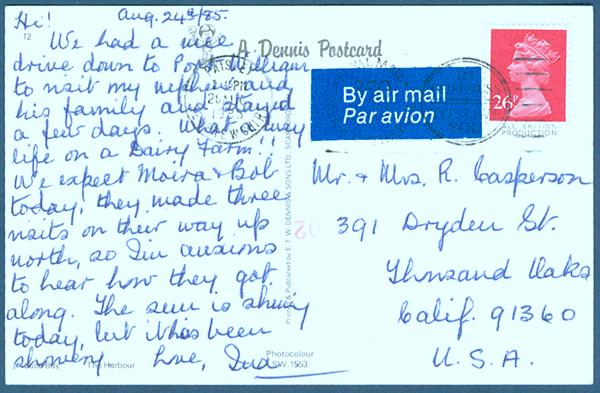 Hi! Aug. 24th/85.
12
We had a nice
drive down to Port William
to visit my nephew and
his family and stayed
a few days. What a busy
life on a Dairy Farm!!
We expect Moira & Bob
today, they made three
visits on their way up
north, so I'm anxious
to hear how they got
along. The sun is shining
today, but it has been
showery Love,
The Harbour
A Dennis Postcard
Printed & Published by E. T. W. DENNIS & SONS LTD.
Photocolour
SW.1553
By air mail
Par avion
26P
ALL BRITISH
PRODUCTION
Mr. & Mrs. R. Casperson
391 Dryden St.
Thousand Oaks
Calif. 91360
U.S.A.